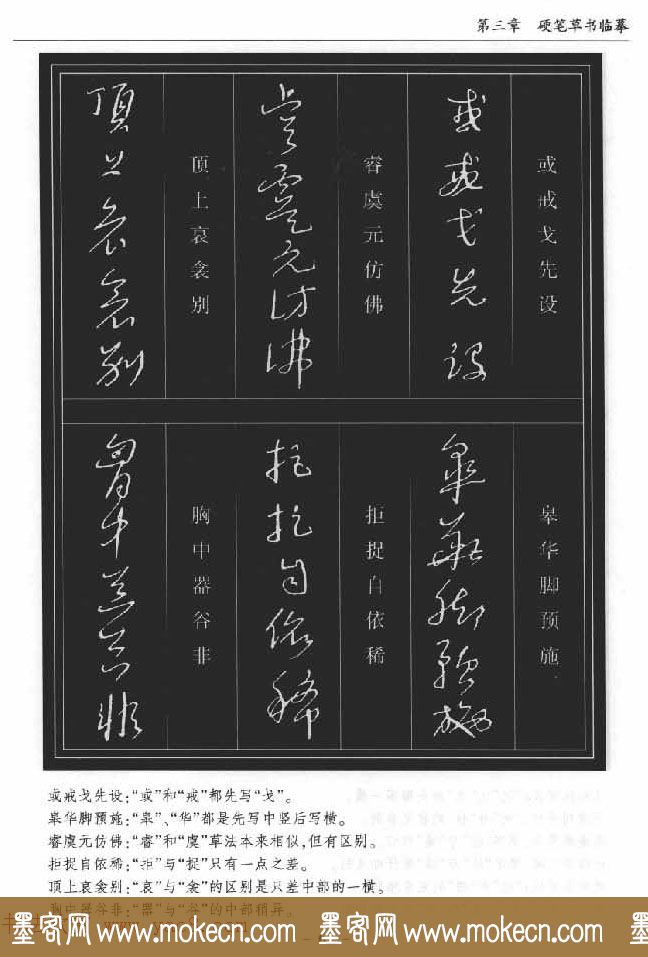 第三章 硬笔草书临摹
或戒戈先设
睿虞元仿佛
顶上哀衾别
皋华脚预施
拒捉自依稀
胸中器谷非
或戒戈先设:“或”和“戒”都先写“戈”。
皋华脚预施:“皋”、“华”都是先写中竖后写横。
睿虞元仿佛:“睿”和“虞”草法本来相似,但有区别。
拒捉自依稀:“拒”与“捉”只有一点之差。
顶上哀衾别:“哀”与“衾”的区别是只差中部的一横。
胸中器谷非:“器”与“谷”的中部稍异。
墨客网 www.mokecn.com 墨客网 www.mokecn.com